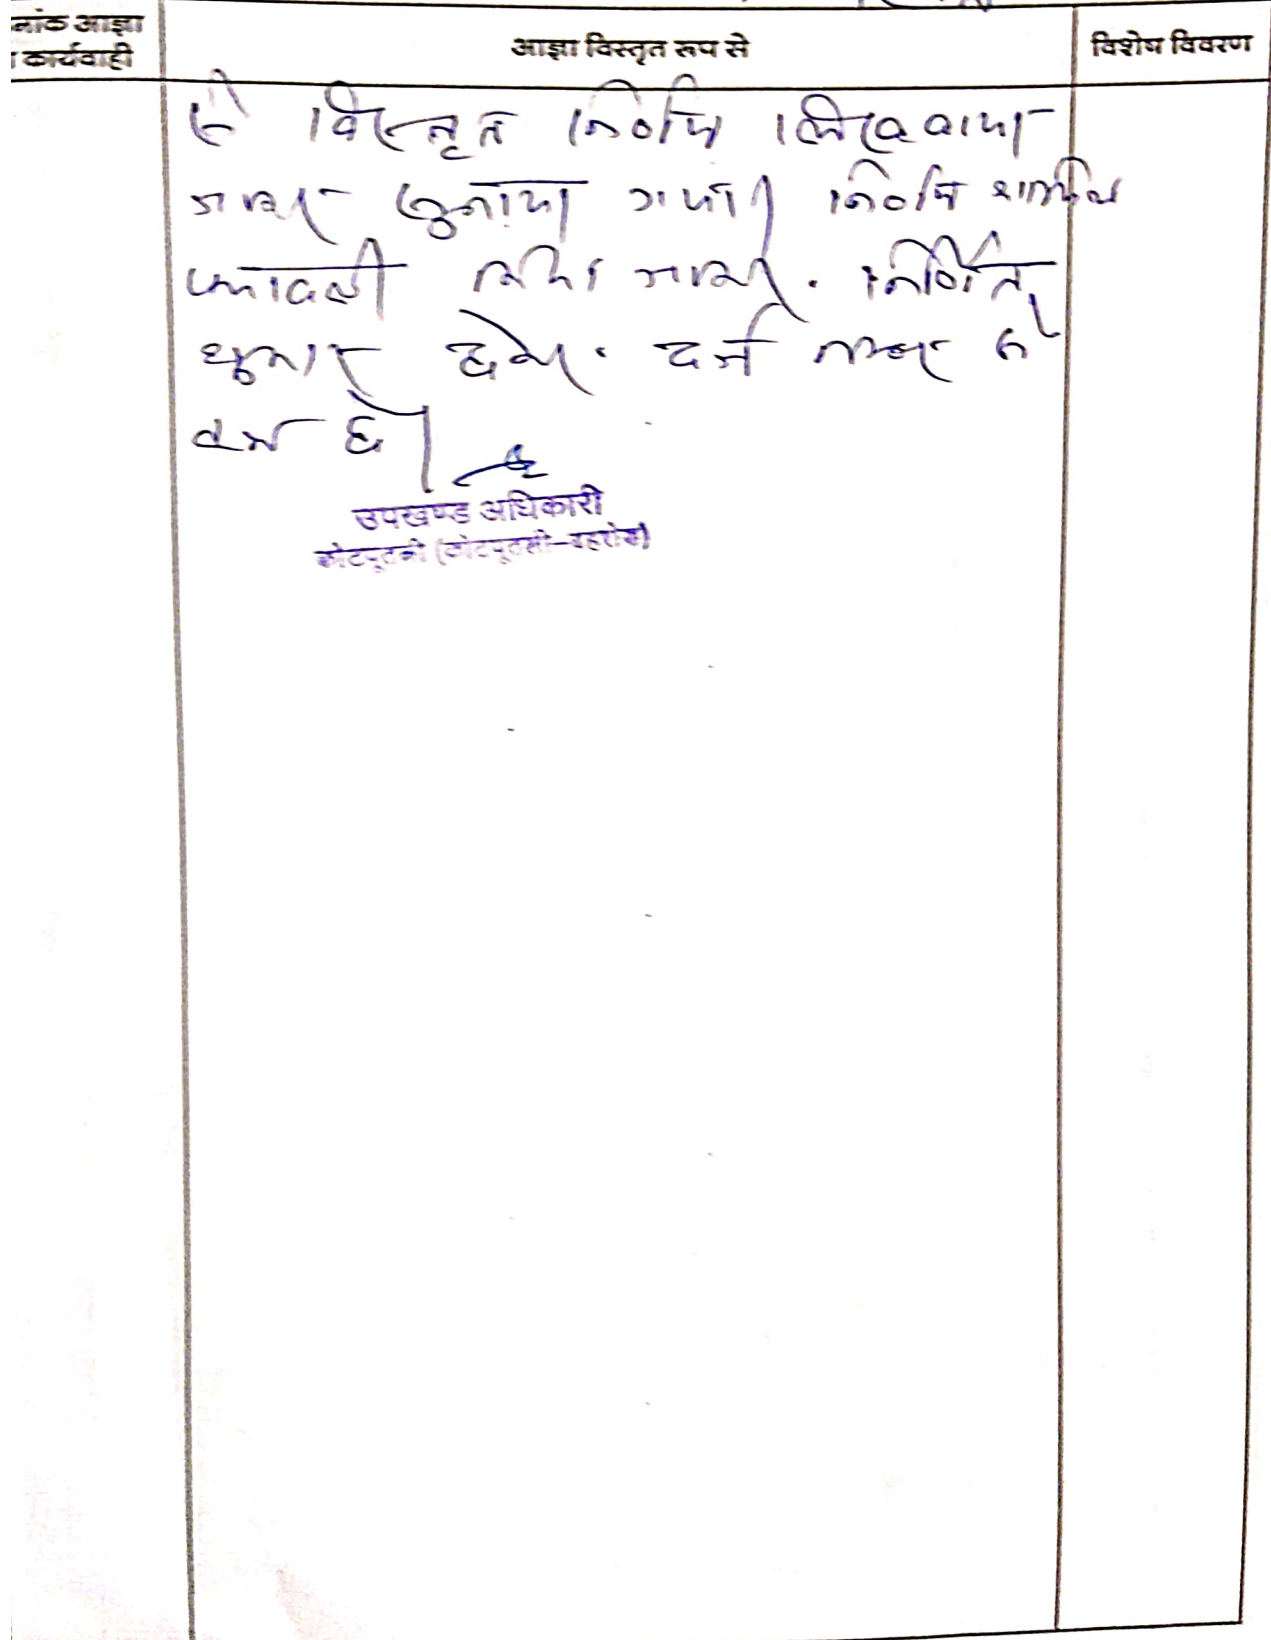 नांक आज्ञा
कार्यवाही
आज्ञा विस्तृत रूप से
विशेष विवरण
से विस्तृत निर्णय लिखवाया
जाकर सुनाया गया। निर्णय शामिल
पत्रावली किया जावे. निर्णित
शुमार होकर. दर्ज नम्बर से
कम हो।
उपखण्ड अधिकारी
कोटपूतली (कोटपूतली-बहरोड)